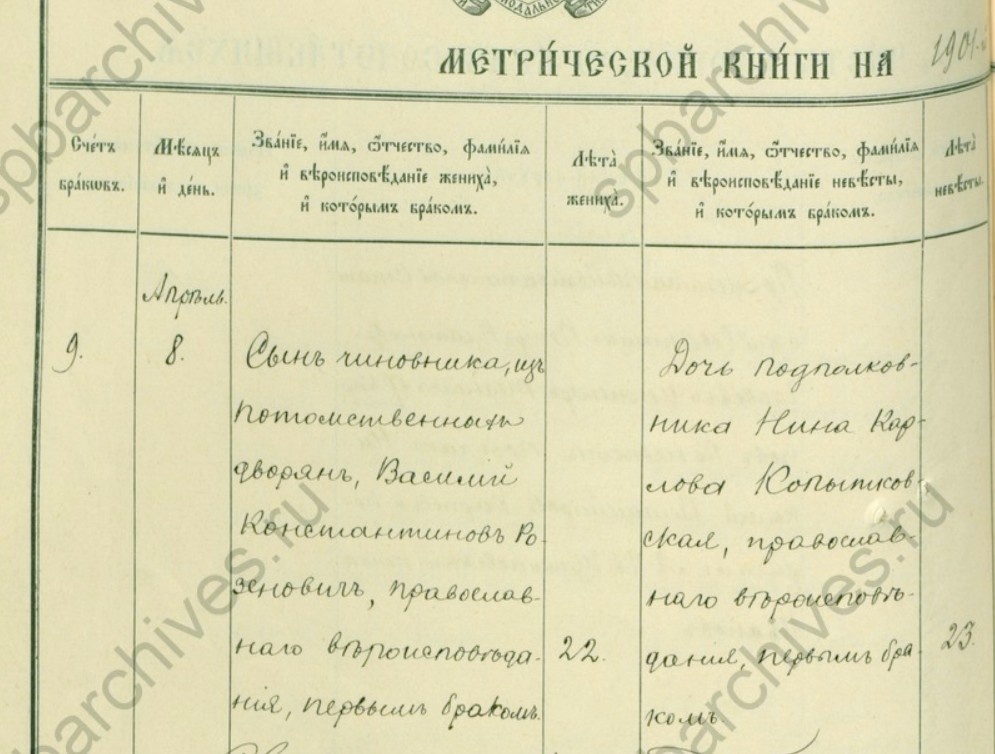 МЕТРИ́ЧЕСКОЙ КНИ́ГИ НА 1901
Сче́тъ бра́кѡвъ.
Мѣ́сѧцъ и҆ де́нь.
Зва́нїе, и҆́мѧ, ѻ҆́тчество, фами́лїѧ
и҆ вѣроисповѣ́данїе жениха̀,
и҆ кото́рымъ бра́комъ.
Лѣта̀
жениха̀.
Зва́нїе, и҆́мѧ, ѻ҆́тчество, фами́лїѧ
и҆ вѣроисповѣ́данїе невѣ́сты,
и҆ кото́рымъ бра́комъ.
Лѣта̀
невѣ́сты.
Апрѣль.
9.
8.
Сынъ чиновника, изъ
потомственныхъ
дворянъ, Василій
Константиновъ Ро-
зеновичъ, православ-
наго вѣроисповѣда-
нія, первымъ бракомъ.
22.
Дочь подполков-
ника Нина Кар-
лова Копытков-
ская, православ-
наго вѣроисповѣ-
данія, первымъ бра-
комъ
23.
spbarchives.ru